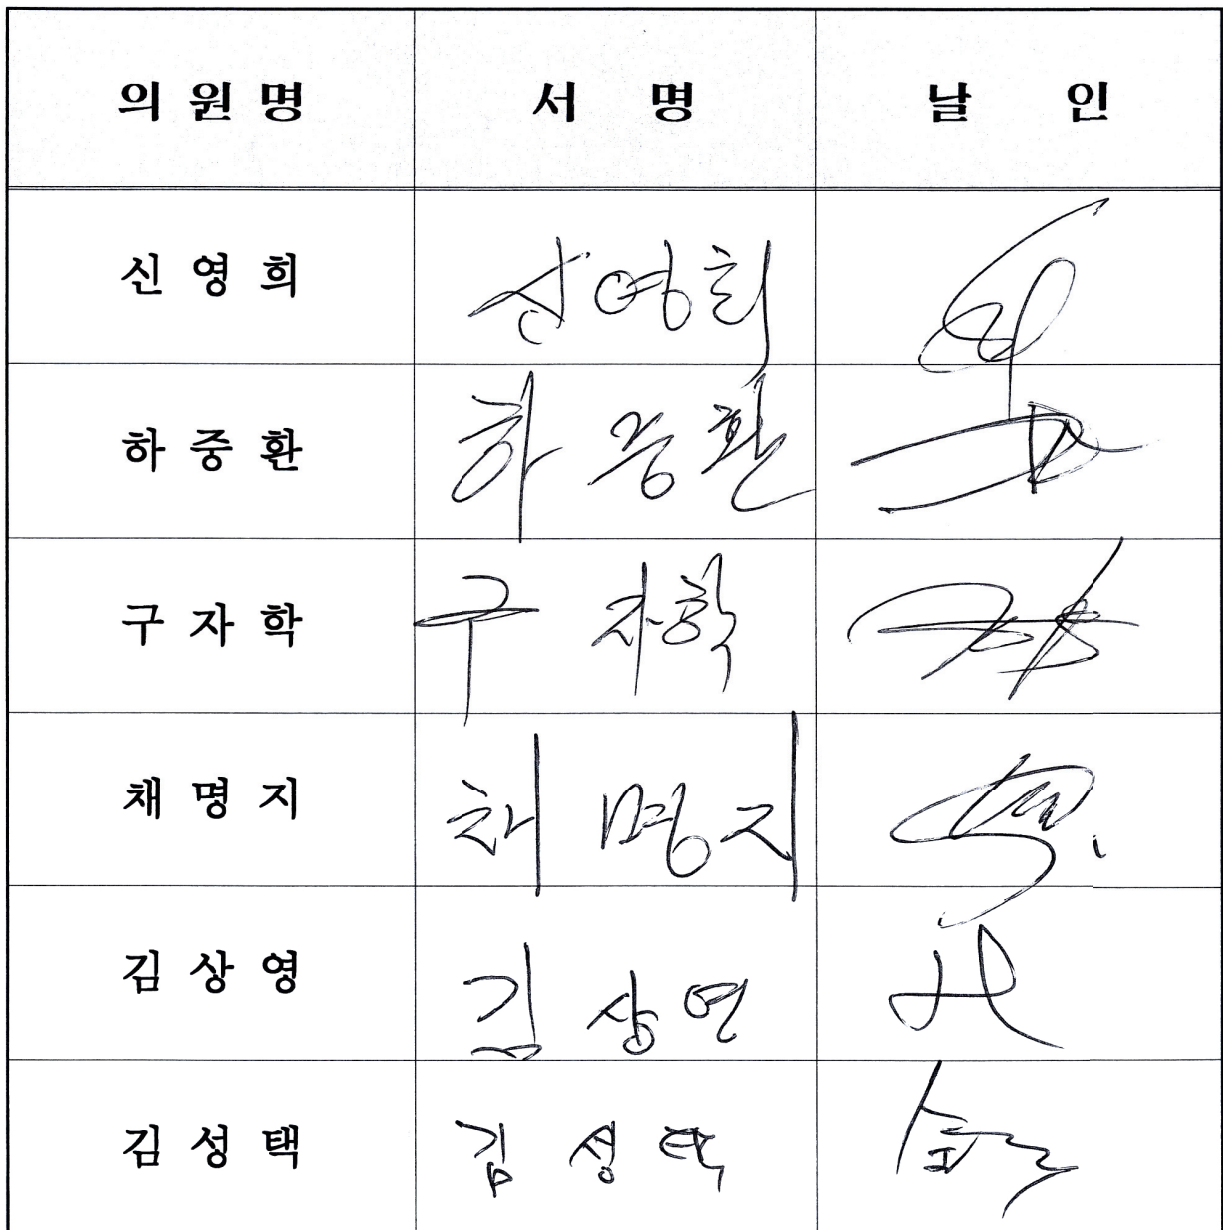 의 원 명 서 명 날 인
신 영 희 신영희
하 중 환 하 중 환
구 자 학 구 자학
채 명 지 채 명 지
김 상 영 김 상 영
김 성 택 김 성 택